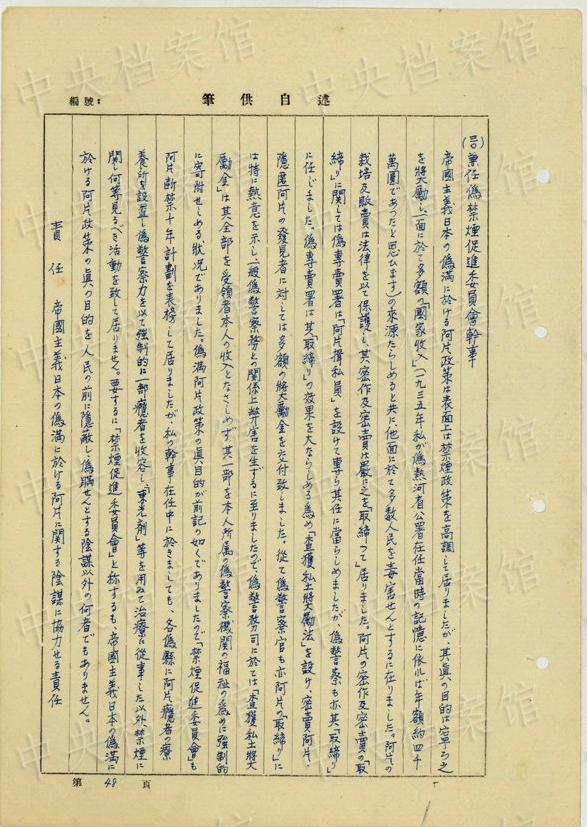 編號:
筆供自述
(三) 兼任偽禁煙促進委員會幹事
帝國主義日本の偽満に於ける阿片政策は表面上は禁煙政策を高調して居りましたが、其真の目的は寧ろ之
を奨励し一面に於て多額の「國家收入」(一九三五年私が偽熱河省公署在任當時の記憶に依れば年額約四千
萬圓であつたと思ひます)の來源たらしめると共に、他面に於て多数人民を毒害せんとするに在りました。阿片の
栽培及販賣は法律を以て保護し、其密作及密賣は嚴に之を取締つて居りました。阿片の密作及密賣の「取
締り」に関しては偽専賣署は「阿片緝私員」を設けて専ら其任に當らしめましたが、偽警察も亦其「取締り」
に任じました。偽専賣署は其「取締り」の效果を大ならしめる為め「査獲私土奬勵法」を設け、密賣阿片、
隠匿阿片の發見者に対しては多額の奨勵金を交付致しました。從て偽警察官も亦阿片の「取締り」に
は特に熱意を示し、一般偽警察務との関係上弊害を生ずるに至りましたので、偽警務司に於ては「査獲私土奬
勵金」は其全部を受領者本人の收入となさしめず、其一部を本人所属の偽警察機関の福祉の為めに強制的
に寄附せしめる状況でありました。偽満阿片政策の真目的が前記の如くでありましたので「禁煙促進委員會」も
阿片断禁十年計劃を表榜して居りましたが、私の幹事在任中に於きましても、各偽縣に阿片癮者の療
養所を設置し偽警察力を以て強制的に一部癮者を收容し、「東光剤」等を用ゐて治療に從事した以外、禁煙に
関し何等見るべき活動を致して居りません。要するに「禁煙促進委員會」と称するも、帝國主義日本の偽満に
於ける阿片政策の真の目的を人民の前に隠蔽し偽瞞せんとする陰謀以外の何者でもありません。
責任 帝國主義日本の偽満に於ける阿片に関する陰謀に協力せる責任
第 48 頁